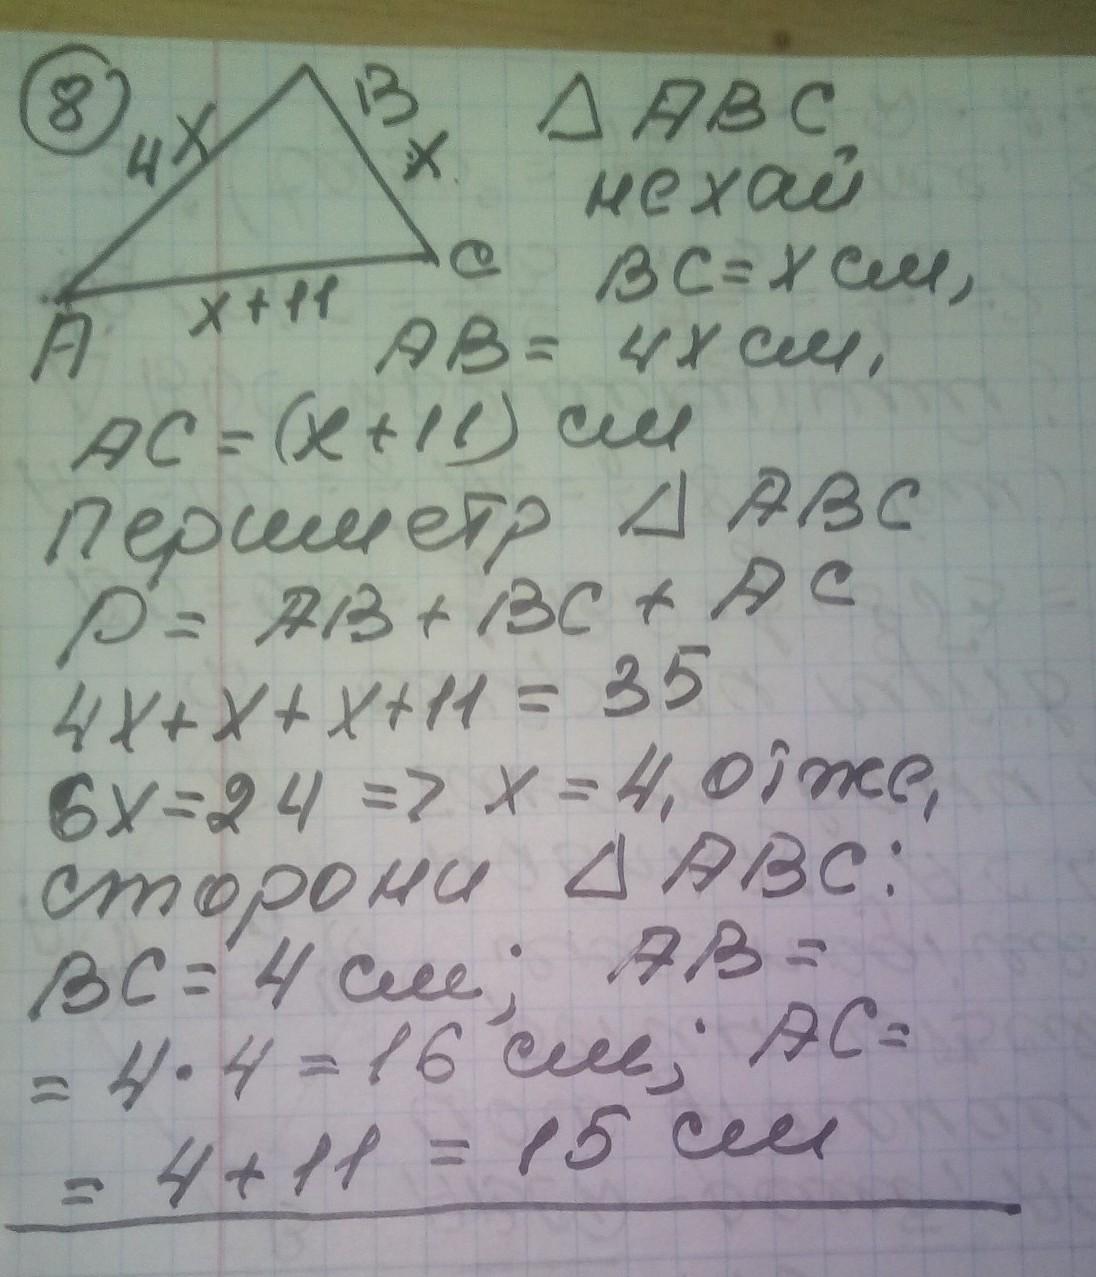 8
4x
B
x
C
x+11
A
Δ ABC
нехай
BC = x см,
AB = 4x см,
AC = (x+11) см
Периметр Δ ABC
P = AB + BC + AC
4x + x + x + 11 = 35
6x = 24 => x = 4, отже,
сторони Δ ABC:
BC = 4 см; AB =
= 4 · 4 = 16 см; AC =
= 4 + 11 = 15 см